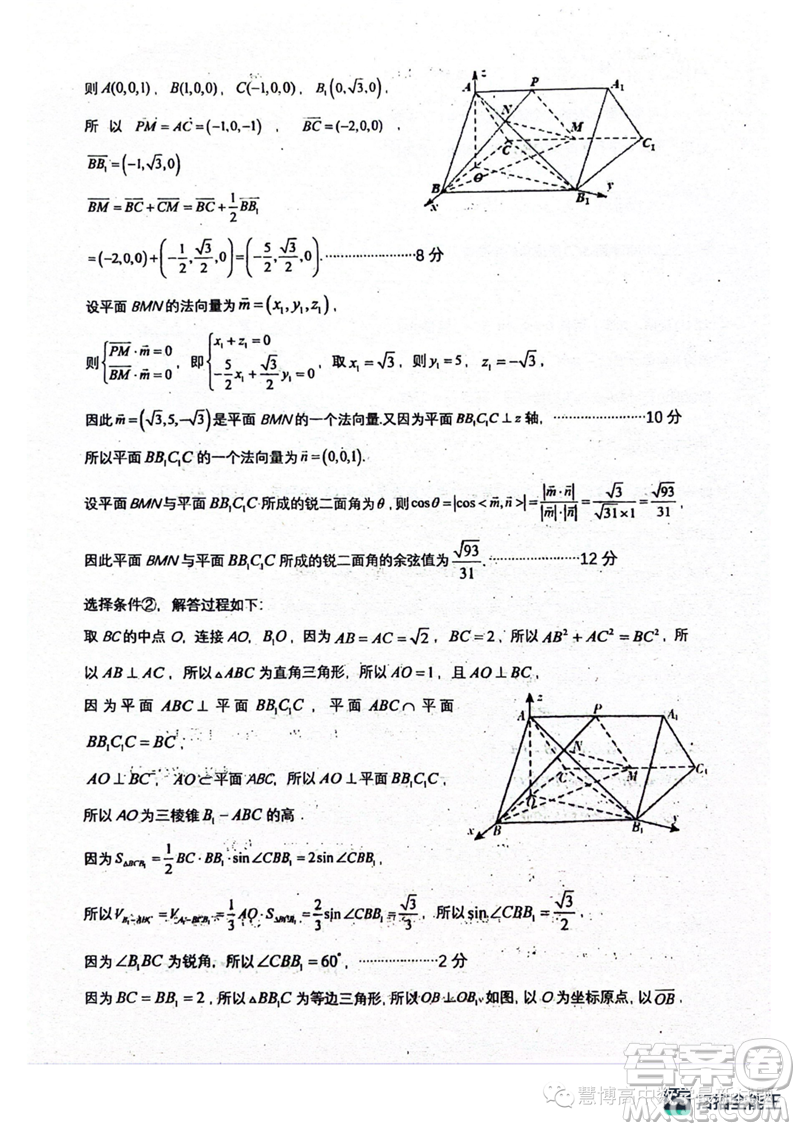 则 A(0,0,1), B(1,0,0), C(-1,0,0), B₁(0,√3,0),
所以 PM⃗ = AC⃗ = (-1,0,-1), BC⃗ = (-2,0,0),
BB₁⃗ = (-1,√3,0)
BM⃗ = BC⃗ + CM⃗ = BC⃗ + 1/2 BB₁⃗
= (-2,0,0) + (-1/2, √3/2, 0) = (-5/2, √3/2, 0). ………………8 分
设平面 BMN 的法向量为 m⃗ = (x₁, y₁, z₁),
则 { PM⃗·m⃗ = 0, BM⃗·m⃗ = 0, 即 { x₁ + z₁ = 0, -5/2 x₁ + √3/2 y₁ = 0, 取 x₁ = √3, 则 y₁ = 5, z₁ = -√3,
因此 m⃗ = (√3,5,-√3) 是平面 BMN 的一个法向量.又因为平面 BB₁C₁C ⊥ z 轴, ………………10 分
所以平面 BB₁C₁C 的一个法向量为 n⃗ = (0,0,1).
设平面 BMN 与平面 BB₁C₁C 所成的锐二面角为 θ, 则 cosθ = |cos<m⃗,n⃗>| = |m⃗·n⃗| / |m⃗|·|n⃗| = √3 / (√31×1) = √93/31,
因此平面 BMN 与平面 BB₁C₁C 所成的锐二面角的余弦值为 √93/31. ………………12 分
选择条件②, 解答过程如下:
取 BC 的中点 O, 连接 AO, B₁O, 因为 AB = AC = √2, BC = 2, 所以 AB² + AC² = BC², 所
以 AB ⊥ AC, 所以 △ABC 为直角三角形, 所以 AO = 1, 且 AO ⊥ BC,
因为平面 ABC ⊥ 平面 BB₁C₁C, 平面 ABC ∩ 平面
BB₁C₁C = BC,
AO ⊥ BC, AO ⊂ 平面 ABC, 所以 AO ⊥ 平面 BB₁C₁C,
所以 AO 为三棱锥 B₁ - ABC 的高.
因为 S△BCB₁ = 1/2 BC·BB₁·sin∠CBB₁ = 2sin∠CBB₁,
所以 V B₁-ABC = V A-BCB₁ = 1/3 AO·S△BCB₁ = 2/3 sin∠CBB₁ = √3/3, 所以 sin∠CBB₁ = √3/2,
因为 ∠B₁BC 为锐角, 所以 ∠CBB₁ = 60°, ………………2 分
因为 BC = BB₁ = 2, 所以 △BB₁C 为等边三角形, 所以 OB ⊥ OB₁, 如图, 以 O 为坐标原点, 以 OB⃗,
z
A
P
A₁
N
M
C
C₁
O
B
x
B₁
y
z
A
P
A₁
N
C
M
C₁
O
x
B
B₁
y
答案圈
MXQE.COM